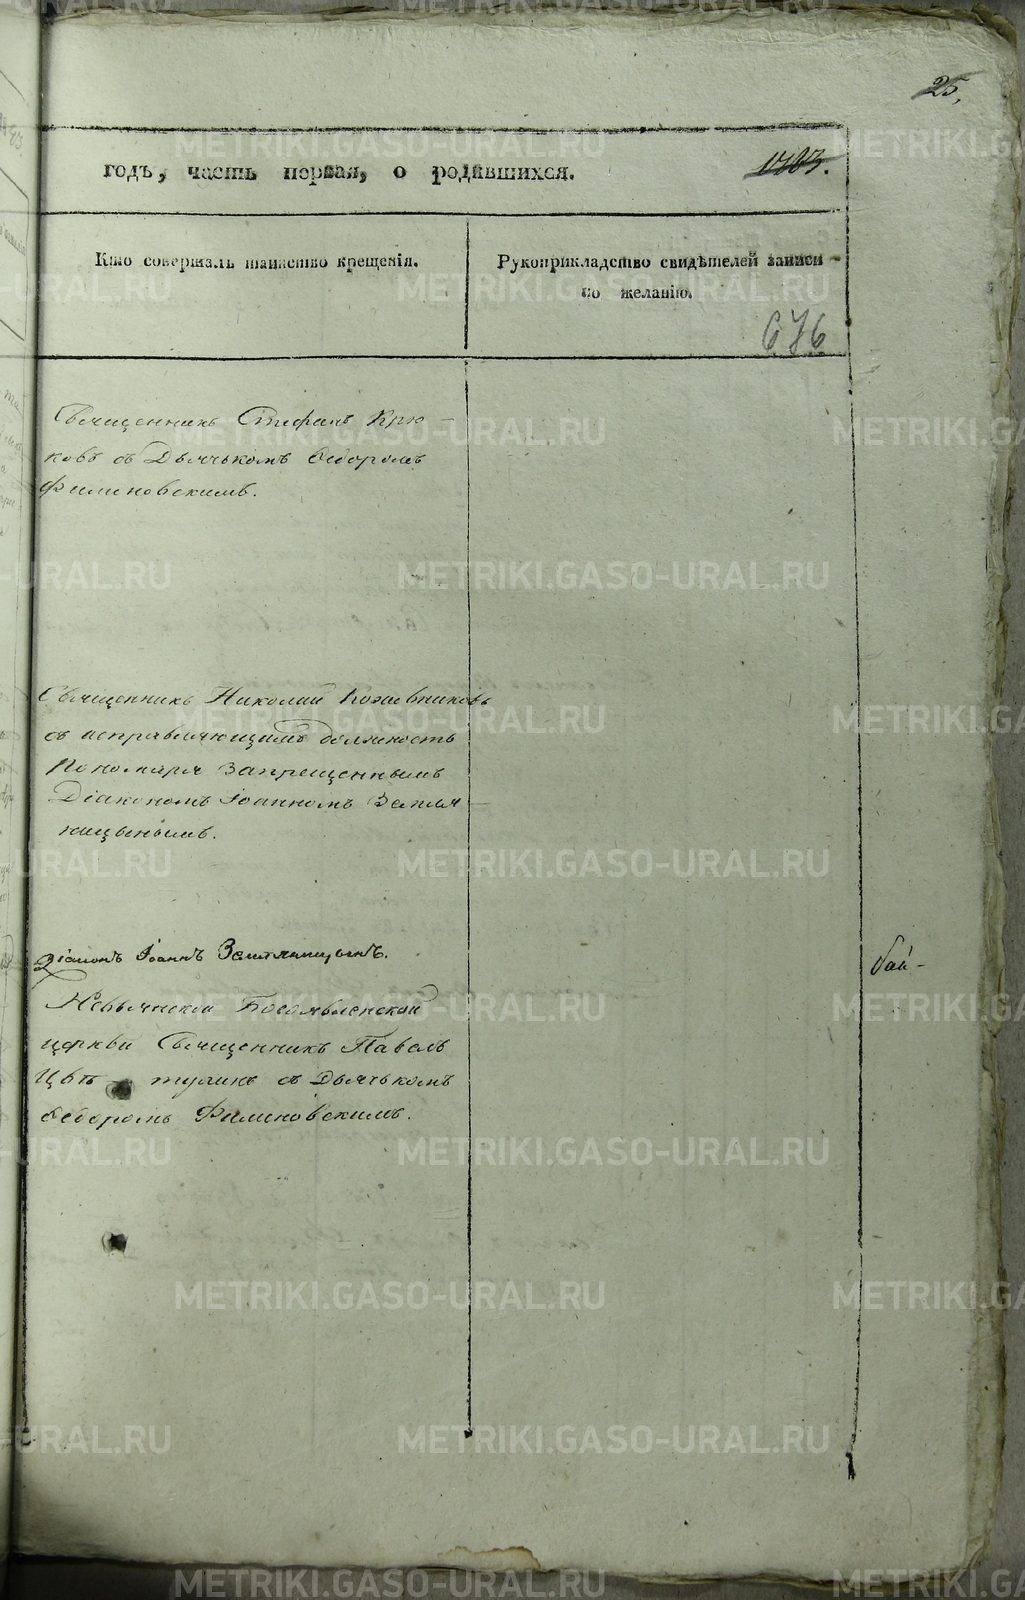 25,
годъ, часть первая, о родившихся.
1783.
Кто совершалъ таинство крещенія.
Рукоприкладство свидѣтелей записи
по желанію.
676
Священникъ Стефанъ Крю-
ковъ съ Дьячькомъ Ѳедоромъ
Филиновскимъ.
Священникъ Николай Кожевниковъ
съ исправляющимъ должность
Пономаря Запрещеннымъ
Діакономъ Іоанномъ Земля-
ницынымъ.
Діаконъ Іоаннъ Земляницынъ.
Невьянской Богоявленской
церкви Священникъ Павелъ
съ Дьячькомъ
Ѳедоромъ Филиновскимъ.
бай-
METRIKI.GASO-URAL.RU